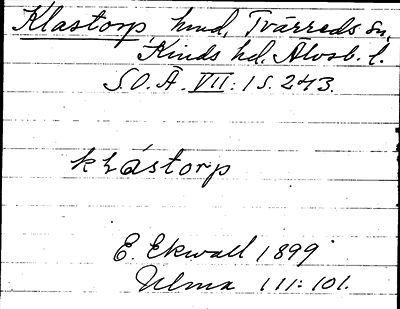 Klastorp, hmd, Tvärreds sn,
Kinds hd. Älvsb. l.
S.O.Ä VII: 1 s. 243.
klástorp
E. Ekwall 1899
Ulma 111:101.